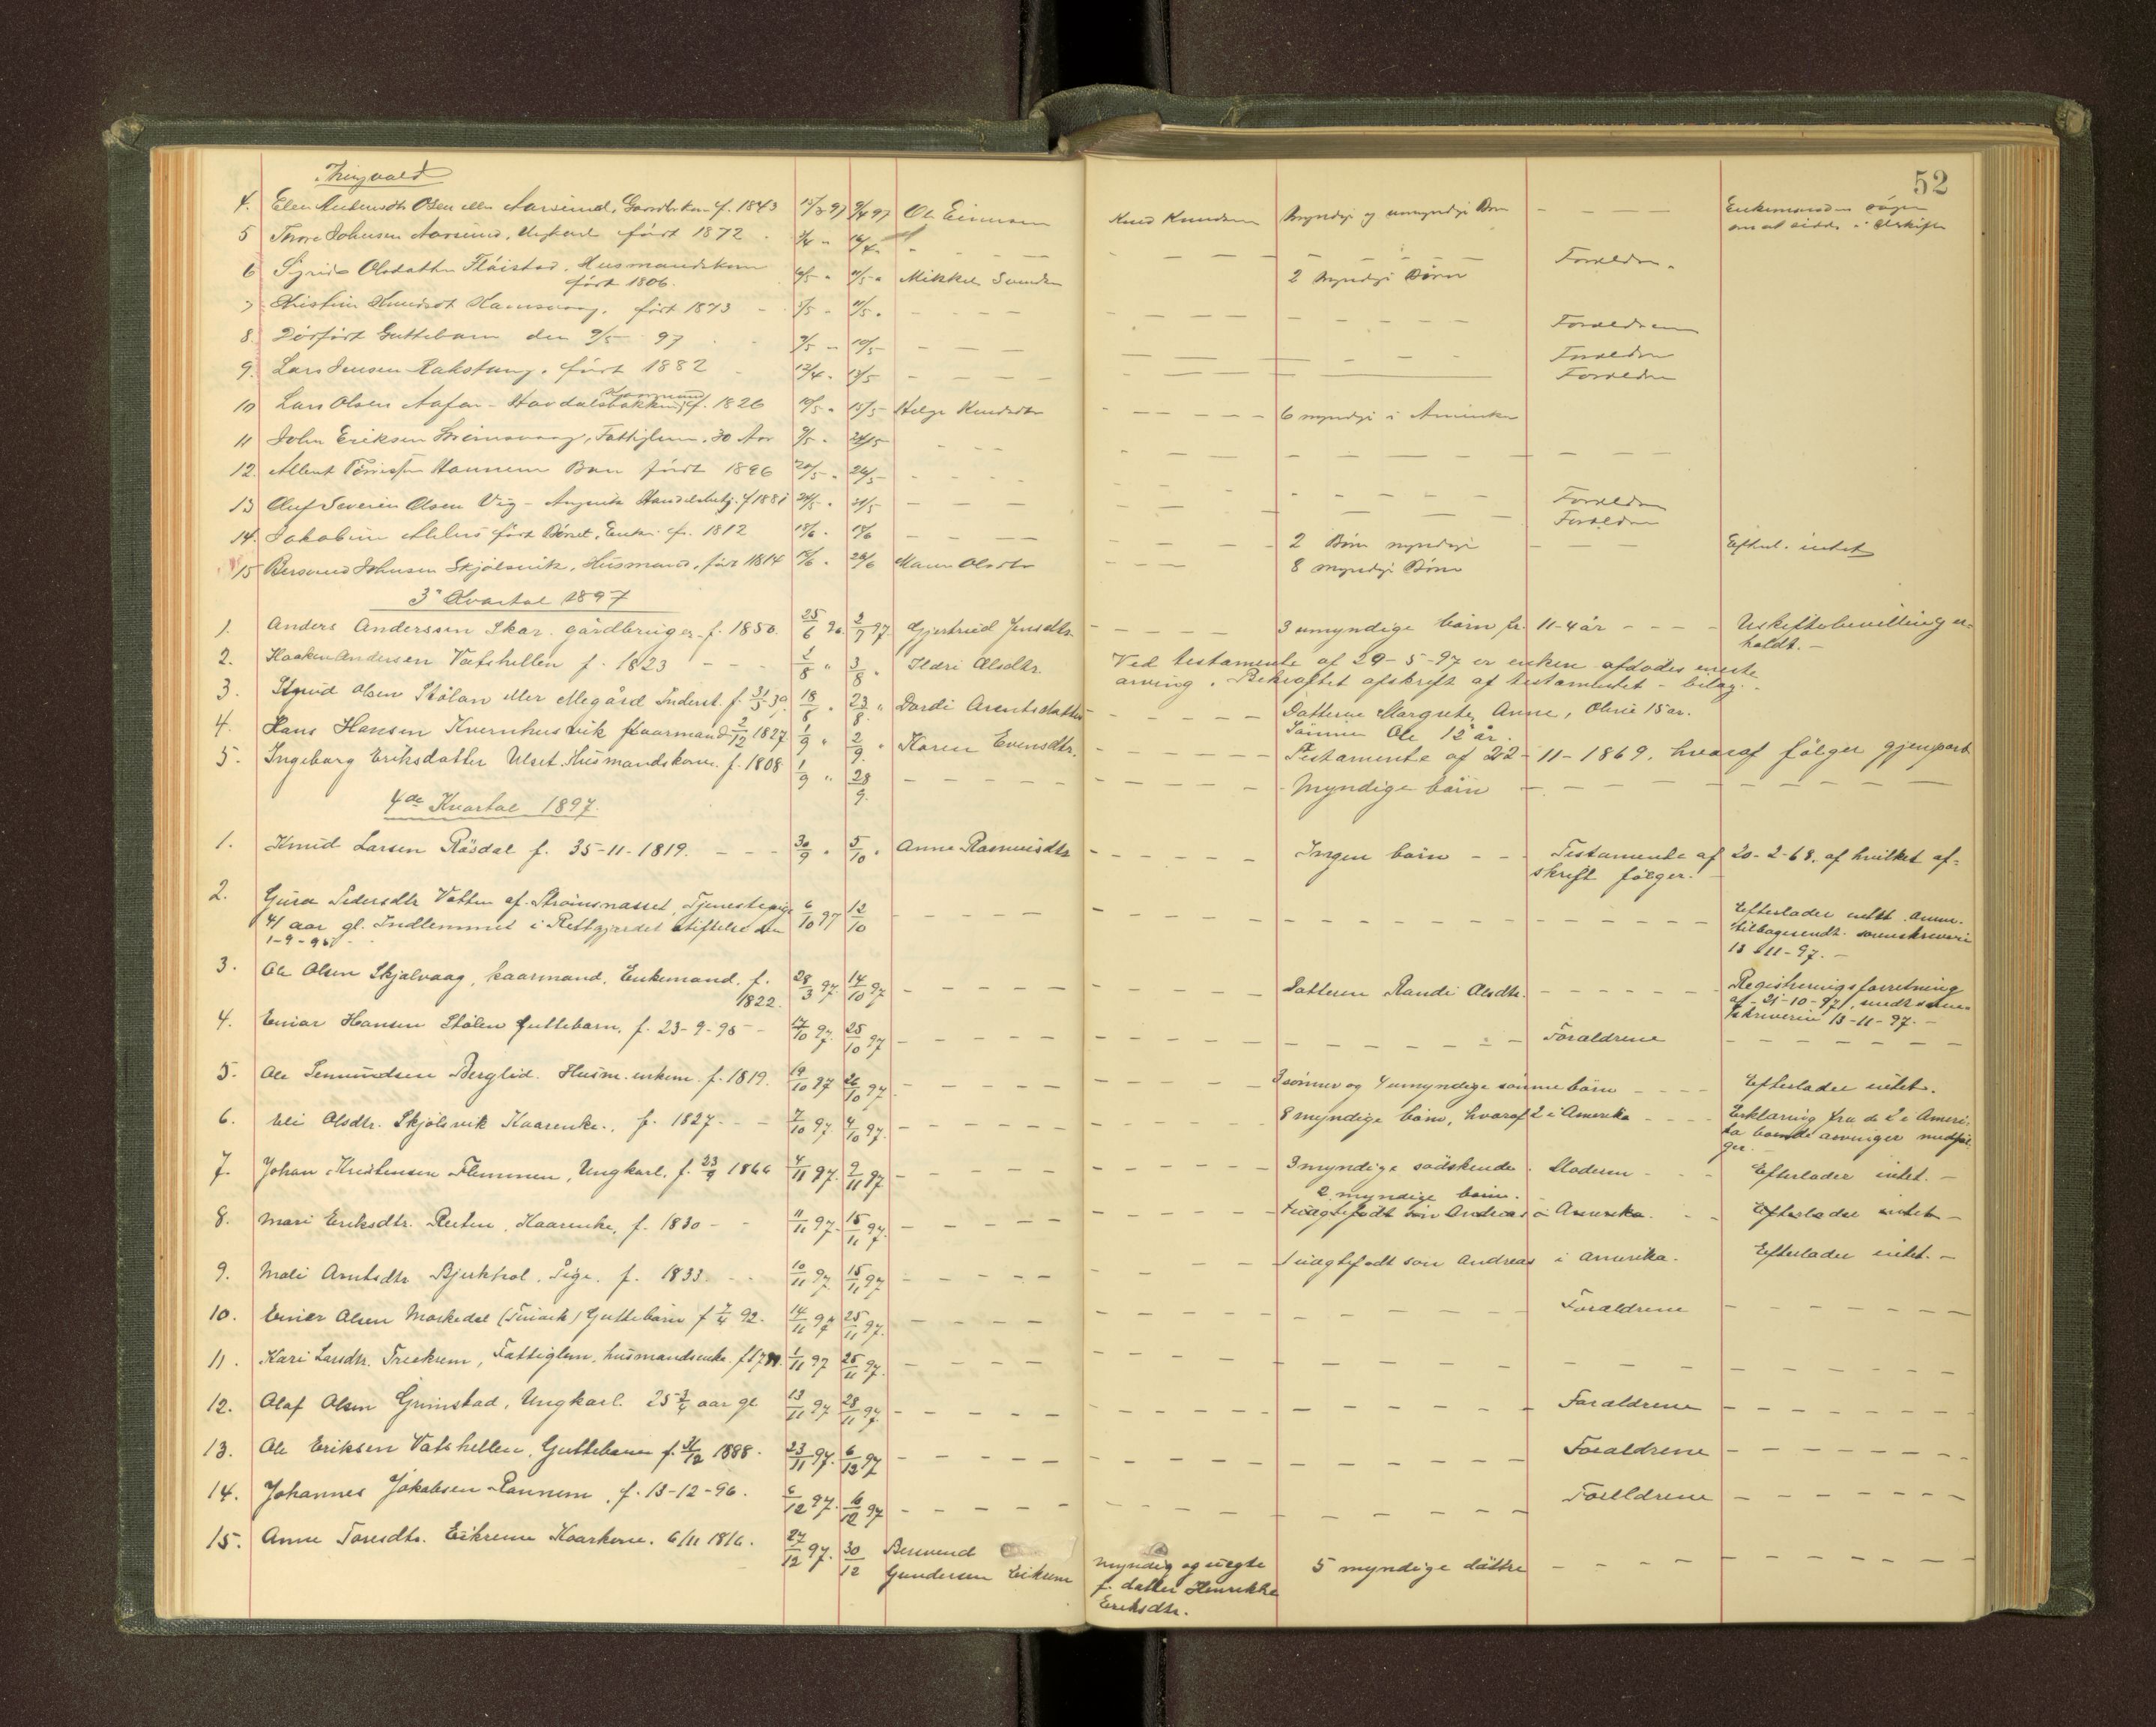 52
Tingvold
4. Elen f. 1843 97 97 Ole Knud Knudsen Myndige og umyndige Børn — — — Enkemanden søger
om at sidde i Uskifte
5 Johnsen Aarsund, Ungkarl født 1872 Forældre
6 Sigrid Olsdatter Fløistad, Husmandskone Mikkel 2 myndige Børn
født 1806.
7 Kristine Knudsdt født 1873 Forældrene
8. Dødfødt Guttebarn den 9/5 97 9/5 10/5 Forældre
9. Lars Jensen Rakstang, født 1882 13/5 Forældre
10 Lars Olsen f. 1826 Helge Knudsdtr 6 myndige i Amerika
11 John Eriksen Fattiglem, 30 Aar 24/5
12. Hannem Barn født 1896 20/5 24/5 Forældre
13 Oluf Severin Olsen Vig f 1881 31/5 Forældre
14. Jakobine født Enke. f. 1812 2 Børn myndige Efterl. intet
15 Johnsen Skjølsvik, Husmand, før 1814 Maren Olsdtr 8 myndige Børn
3' Kvartal 1897
1. Anders Anderssen Skar. gårdbruger. f. 1850. 25/6 2/7 97. Gjertrud Jensdtr. 3 umyndige børn fr. 11-4 år Uskiftebevilling er-
holdt. —
2. Haaken Andersen Vatshellen f. 1823 3/8 Ildri Olsdtr. Ved testamente af 29-5-97 er enken afdødes eneste
arving. Bekræftet afskrift af testamentet - bilag.
3. Olsen Stølan eller Megård Inderst. f. 18/8 23/8 Dordi Arentsdatter Døttrene Margrete, Anne, Olivie 15 år.
Sønnen Ole 12 år.
4. Hans Hansen Kvernhusvik Kaarmand 2/12 1827 1/9 2/9. Karen Evensdtr. Testamente af 22-11-1869, hvoraf følger gjenpart
5. Ingeborg Eriksdatter Ulset Husmandskone. f. 1808 1/9 28/9. Myndige børn
4de Kvartal 1897.
1. Knud Larsen Røsdal f. 35-11-1819. 30/9 5/10 Anne Rasmusdtr Ingen børn Testamente af 20-2-68, af hvilket af-
skrift følger.
2. Guro Pedersdtr Vatten af Strømsnasset, Tjenestepige 6/10 97 12/10 Efterlader intet.
41 aar gl. Indlemmet i Rettgjærdet Stiftelse den tilbagesendt sorenskriveri
1-9-95 13-11-97. —
3. Ole Olsen Skjølvaag, kaarmand, Enkemand. f. 28/3 97. 14/10 97 Datteren Randi Olsdtr. Registreringsforretning
1822. af 21-10-97, sendt soren-
skriveren 13-11-97. —
4. Einar Hansen Stølen Guttebarn, f. 23-9-95 17/10 97. 25/10 97 Forældrene
5. Ole Semundsen Berglid. Husm. enkem. f. 1819. 19/10 97 26/10 97. 3 sønner og 4 umyndige sønnebørn Efterlader intet.
6. Eli Olsdtr. Skjølsvik Kaarenke., f. 1827 7/10 97. 4/10 97. 8 myndige børn, hvoraf 2 i Amerika Erklæring fra de 2 i Ameri-
ka boende arvinger medføl-
ger. —
7. Johan Kristensen Flemmen, Ungkarl. f. 23/9 1866 4/11 97. 9/11 97 3 myndige sødskende. Moderen Efterlader intet. —
2 myndige børn.
8. Mari Eriksdtr. Reiten, Kaarenke, f. 1830 11/11 97. 15/11 97. 1 uægtefødt søn Andreas i Amerika. Efterlader intet —
9. Mali Arntsdtr Bjerkhol, Pige. f. 1833. 10/11 97. 15/11 97 1 uægtefødt søn Andreas i Amerika. Efterlader intet. —
10. Einar Olsen Morkedal Guttebarn f 7/4 92. 14/11 97 25/11 97. Forældrene
11. Kari Larsdtr. Treekrem, Fattiglem, husmandsenke. 1/11 97 25/11 97.
12. Olaf Olsen Grimstad, Ungkarl. 25 3/4 aar gl 13/11 97 28/11 97 Forældrene
13. Ole Eriksen Vatshellen, Guttebarn f. 31/12 1888. 23/11 97. 6/12 97 Forældrene
14. Johannes Jakobsen Rannem, f. 13-12-96. 6/12 97. 16/12 97 Forældrene
15. Anne Toresdtr. Eikrem Kaarkone. 6/11 1816. 27/12 97. 30/12 Berevend
Gundersen Eikrem myndig og uægte
f. datter Henrikke
Eriksdtr. 5 myndige døttre